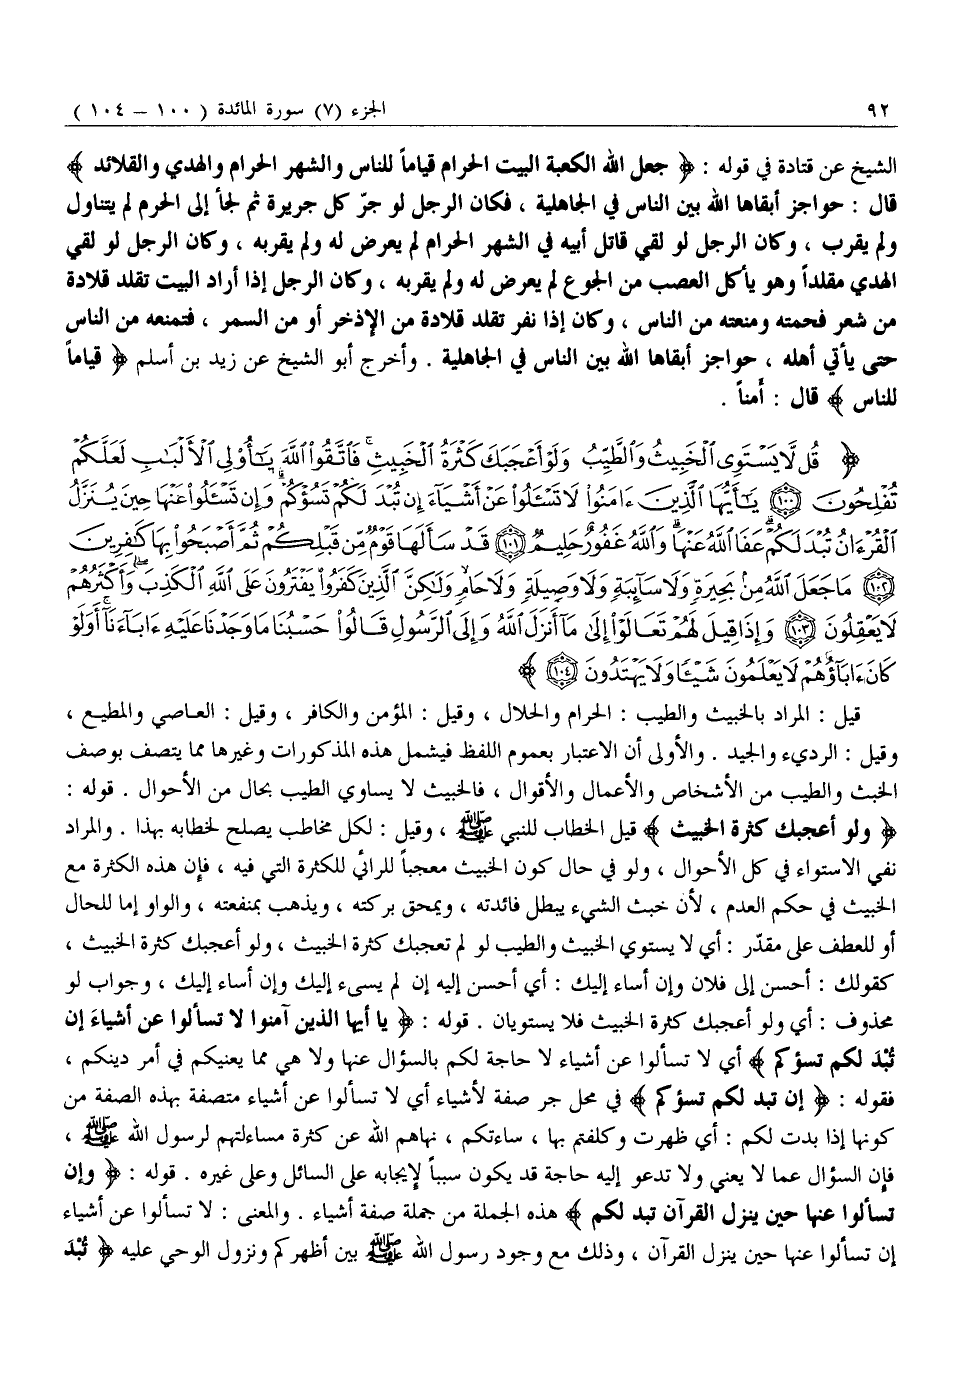 ٩٢ الجزء (٧) سورة المائدة ( ١٠٠ – ١٠٤ )
الشيخ عن قتادة في قوله : ﴿ جعل الله الكعبة البيت الحرام قياماً للناس والشهر الحرام والهدي والقلائد ﴾
قال : حواجز أبقاها الله بين الناس في الجاهلية ، فكان الرجل لو جرّ كل جريرة ثم لجأ إلى الحرم لم يتناول
ولم يقرب ، وكان الرجل لو لقي قاتل أبيه في الشهر الحرام لم يعرض له ولم يقربه ، وكان الرجل لو لقي
الهدي مقلداً وهو يأكل العصب من الجوع لم يعرض له ولم يقربه ، وكان الرجل إذا أراد البيت تقلد قلادة
من شعر فحمته ومنعته من الناس ، وكان إذا نفر تقلد قلادة من الإذخر أو من السمر ، فتمنعه من الناس
حتى يأتي أهله ، حواجز أبقاها الله بين الناس في الجاهلية . وأخرج أبو الشيخ عن زيد بن أسلم ﴿ قياماً
للناس ﴾ قال : أَمناً .
﴿ قُل لَّا يَسْتَوِى ٱلْخَبِيثُ وَٱلطَّيِّبُ وَلَوْ أَعْجَبَكَ كَثْرَةُ ٱلْخَبِيثِ ۚ فَٱتَّقُوا۟ ٱللَّهَ يَـٰٓأُو۟لِى ٱلْأَلْبَـٰبِ لَعَلَّكُمْ
تُفْلِحُونَ ﴿١٠٠﴾ يَـٰٓأَيُّهَا ٱلَّذِينَ ءَامَنُوا۟ لَا تَسْـَٔلُوا۟ عَنْ أَشْيَآءَ إِن تُبْدَ لَكُمْ تَسُؤْكُمْ وَإِن تَسْـَٔلُوا۟ عَنْهَا حِينَ يُنَزَّلُ
ٱلْقُرْءَانُ تُبْدَ لَكُمْ عَفَا ٱللَّهُ عَنْهَا ۗ وَٱللَّهُ غَفُورٌ حَلِيمٌ ﴿١٠١﴾ قَدْ سَأَلَهَا قَوْمٌ مِّن قَبْلِكُمْ ثُمَّ أَصْبَحُوا۟ بِهَا كَـٰفِرِينَ
﴿١٠٢﴾ مَا جَعَلَ ٱللَّهُ مِنۢ بَحِيرَةٍ وَلَا سَآئِبَةٍ وَلَا وَصِيلَةٍ وَلَا حَامٍ ۙ وَلَـٰكِنَّ ٱلَّذِينَ كَفَرُوا۟ يَفْتَرُونَ عَلَى ٱللَّهِ ٱلْكَذِبَ ۖ وَأَكْثَرُهُمْ
لَا يَعْقِلُونَ ﴿١٠٣﴾ وَإِذَا قِيلَ لَهُمْ تَعَالَوْا۟ إِلَىٰ مَآ أَنزَلَ ٱللَّهُ وَإِلَى ٱلرَّسُولِ قَالُوا۟ حَسْبُنَا مَا وَجَدْنَا عَلَيْهِ ءَابَآءَنَآ ۚ أَوَلَوْ
كَانَ ءَابَآؤُهُمْ لَا يَعْلَمُونَ شَيْـًٔا وَلَا يَهْتَدُونَ ﴿١٠٤﴾ ﴾
قيل : المراد بالخبيث والطيب : الحرام والحلال ، وقيل : المؤمن والكافر ، وقيل : العاصي والمطيع ،
وقيل : الرديء والجيد . والأولى أن الاعتبار بعموم اللفظ فيشمل هذه المذكورات وغيرها مما يتصف بوصف
الخبث والطيب من الأشخاص والأعمال والأقوال ، فالخبيث لا يساوي الطيب بحال من الأحوال . قوله :
﴿ ولو أعجبك كثرة الخبيث ﴾ قيل الخطاب للنبي ﷺ ، وقيل : لكل مخاطب يصلح لخطابه بهذا . والمراد
نفي الاستواء في كل الأحوال ، ولو في حال كون الخبيث معجباً للرائي للكثرة التي فيه ، فإن هذه الكثرة مع
الخبيث في حكم العدم ، لأن خبث الشيء يبطل فائدته ، ويمحق بركته ، ويذهب بمنفعته ، والواو إما للحال
أو للعطف على مقدّر : أي لا يستوي الخبيث والطيب لو لم تعجبك كثرة الخبيث ، ولو أعجبك كثرة الخبيث ،
كقولك : أحسن إلى فلان وإن أساء إليك : أي أحسن إليه إن لم يسىء إليك وإن أساء إليك ، وجواب لو
محذوف : أي ولو أعجبك كثرة الخبيث فلا يستويان . قوله : ﴿ يا أيها الذين آمنوا لا تسألوا عن أشياءَ إن
تُبْدَ لكم تسؤكم ﴾ أي لا تسألوا عن أشياء لا حاجة لكم بالسؤال عنها ولا هي مما يعنيكم في أمر دينكم ،
فقوله : ﴿ إن تبد لكم تسؤكم ﴾ في محل جر صفة لأشياء أي لا تسألوا عن أشياء متصفة بهذه الصفة من
كونها إذا بدت لكم : أي ظهرت وكلفتم بها ، ساءتكم ، نهاهم الله عن كثرة مساءلتهم لرسول الله ﷺ ،
فإن السؤال عما لا يعني ولا تدعو إليه حاجة قد يكون سبباً لإيجابه على السائل وعلى غيره . قوله : ﴿ وإن
تسألوا عنها حين ينزل القرآن تبد لكم ﴾ هذه الجملة من جملة صفة أشياء . والمعنى : لا تسألوا عن أشياء
إن تسألوا عنها حين ينزل القرآن ، وذلك مع وجود رسول الله ﷺ بين أظهركم ونزول الوحي عليه ﴿ تُبْدَ